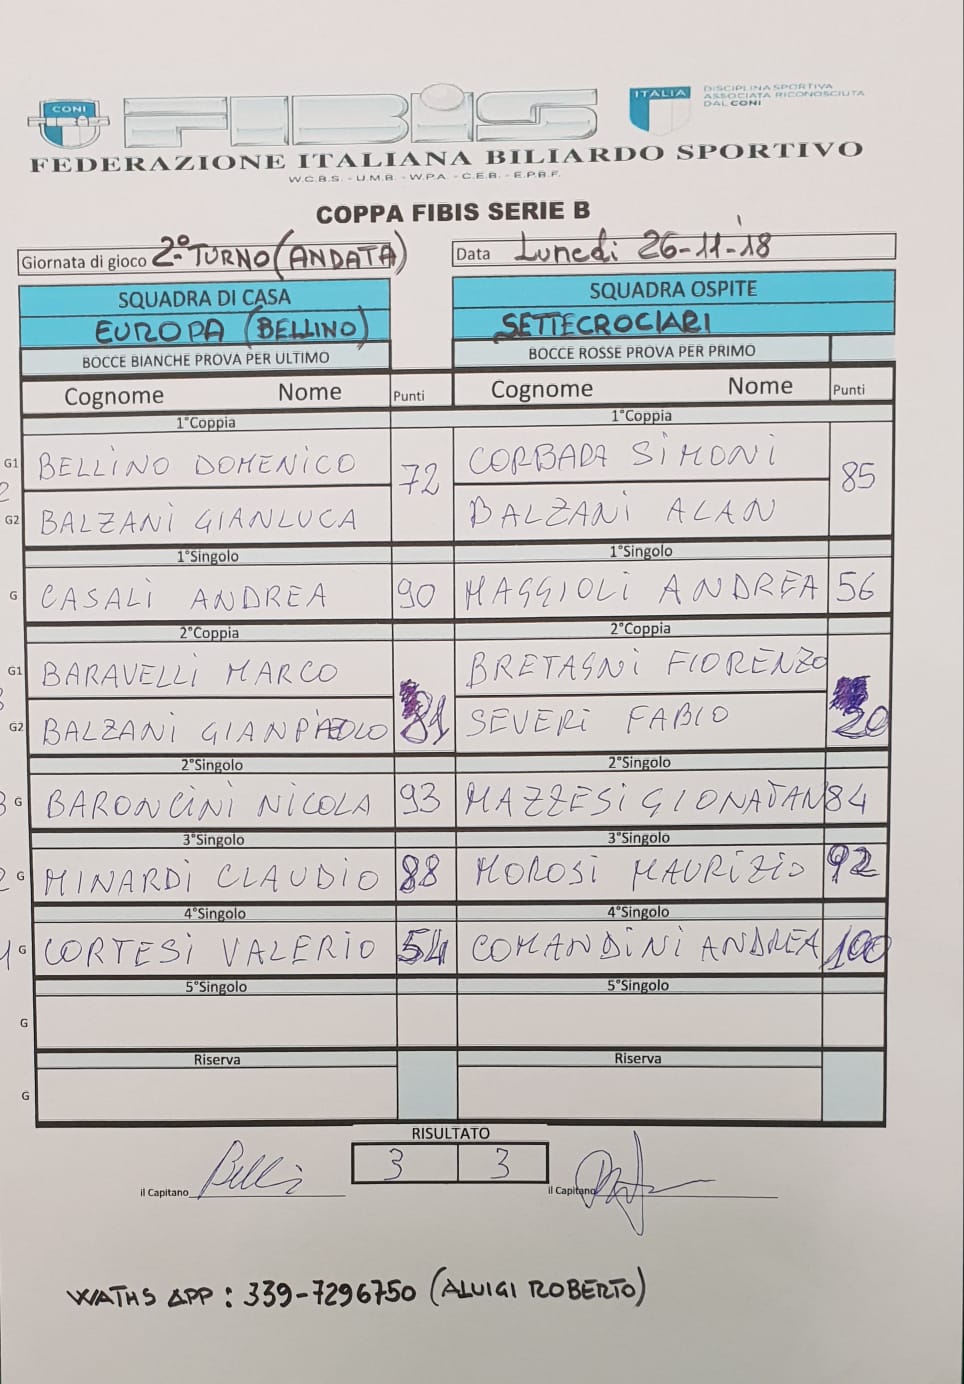 CONI
FIBIS
ITALIA
DISCIPLINA SPORTIVA
ASSOCIATA RICONOSCIUTA
DAL CONI
FEDERAZIONE ITALIANA BILIARDO SPORTIVO
W.C.B.S. - U.M.B. - W.P.A. - C.E.B. - E.P.B.F.
COPPA FIBIS SERIE B
Giornata di gioco 2° TURNO (ANDATA)
Data Lunedì 26-11-'18
SQUADRA DI CASA
SQUADRA OSPITE
EUROPA (BELLINO)
SETTECROCIARI
BOCCE BIANCHE PROVA PER ULTIMO
BOCCE ROSSE PROVA PER PRIMO
Cognome Nome Punti Cognome Nome Punti
1°Coppia 1°Coppia
G1 BELLINO DOMENICO 72 SIMONI 85
G2 BALZANI GIANLUCA BALZANI ALAN
1°Singolo 1°Singolo
G CASALI ANDREA 90 MAGGIOLI ANDREA 56
2°Coppia 2°Coppia
G1 BARAVELLI MARCO BRETAGNI FIORENZO
G2 BALZANI GIANPAOLO 81 SEVERI FABIO 20
2°Singolo 2°Singolo
G BARONCINI NICOLA 93 MAZZESI GIONATAN 84
3°Singolo 3°Singolo
G MINARDI CLAUDIO 88 MOROSI MAURIZIO 92
4°Singolo 4°Singolo
G CORTESI VALERIO 54 COMANDINI ANDREA 100
5°Singolo 5°Singolo
G
Riserva Riserva
G
RISULTATO
3 3
il Capitano il Capitano
WATHS APP : 339-7296750 (ALUIGI ROBERTO)